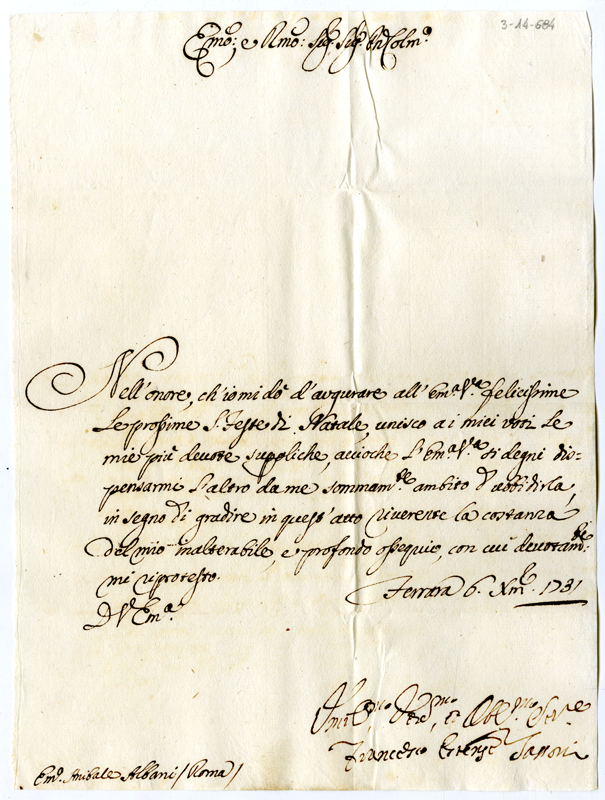 3-14-684
Emo: e Rmo: Sig. Sig. Pn Colmo
Nell'onore, ch'io mi dò d'augurare all'Ema Va felicissime
le prossime S. Feste di Natale, unisco a i miei voti le
mie più devote suppliche, acciocche l'Ema Va si degni dis-
pensarmi l'altro da me sommamte ambito d'ubbidirla,
in segno di gradire in quest'atto riverente la costanza
del mio inalterabile, e profondo ossequio, con cui devotamte:
mi riprotesto.
D. V. Ema.
Ferrara 6. Xmbre 1731
Umilmo, Devmo, e Oblmo Serve
Francesco Estense Tassoni
Emo. Anibale Albani (Roma)